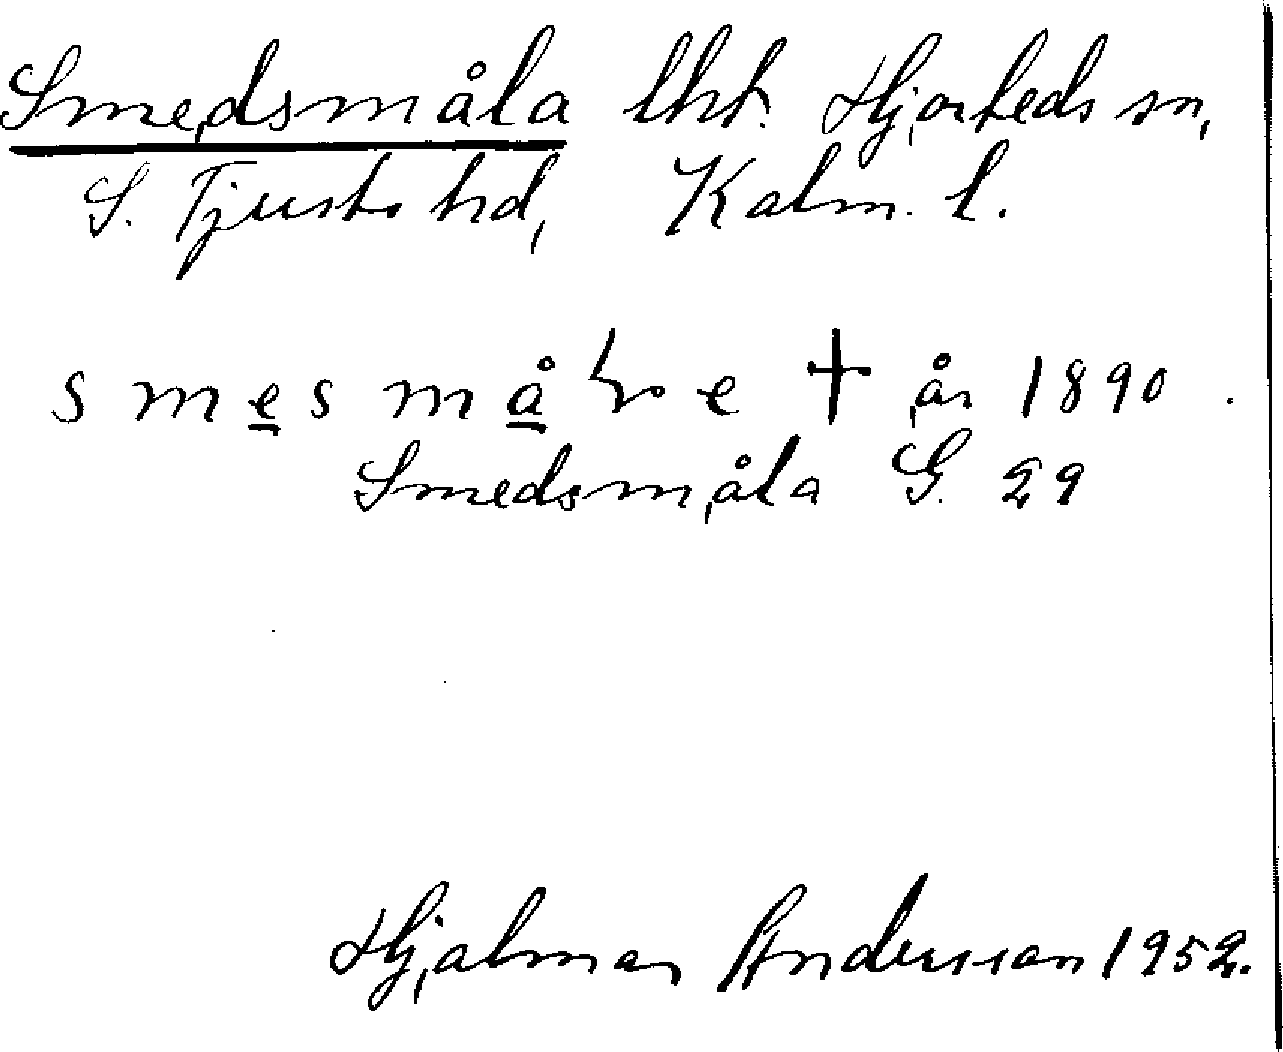 Smedsmåla lht. Hjorteds sn,
S. Tjusts hd, Kalm. l.
† år 1890.
Smedsmåla G. 29
Hjalmar Andersson 1952.